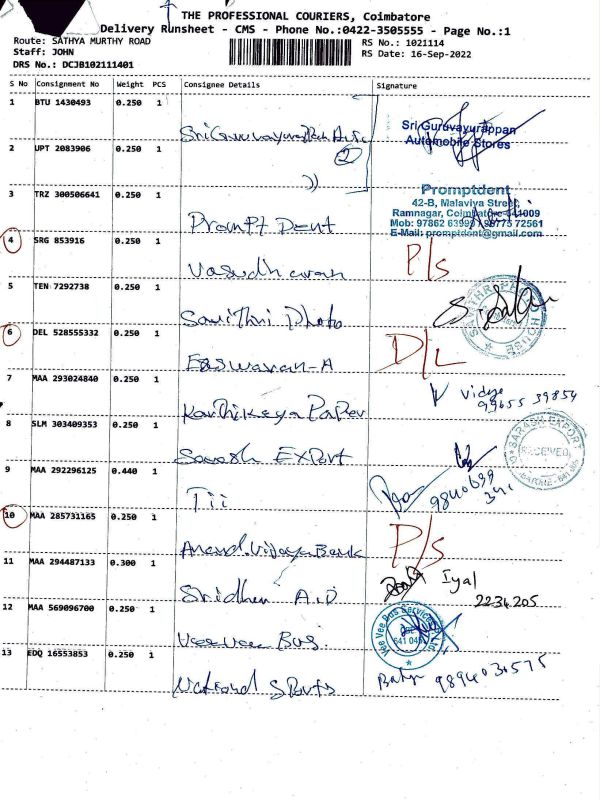 THE PROFESSIONAL COURIERS, Coimbatore
Delivery Runsheet - CMS - Phone No.:0422-3505555 - Page No.:1
Route: SATHYA MURTHY ROAD
RS No.: 1021114
Staff: JOHN
RS Date: 16-Sep-2022
DRS No.: DCJB102111401
S No Consignment No Weight PCS Consignee Details Signature
1 BTU 1430493 0.250 1
Sri Guruvayurappan
Automobile Stores
2 UPT 2083906 0.250 1
2
3 TRZ 300506641 0.250 1
Prompt Dent
Promptdent
42-B, Malaviya Street,
Ramnagar, Coimbatore-641009
E-Mail: promptdent@gmail.com
4 SRG 853916 0.250 1
Vasudhavan
P/s
5 TEN 7292738 0.250 1
Savithri Photo
6 DEL 528555332 0.250 1
Easwaran-A
D/L
7 MAA 293024840 0.250 1
Karthikeya Paper
8 SLM 303409353 0.250 1
Export
SARASH EXPORT
RECEIVED
9 MAA 292296125 0.440 1
Tii
10 MAA 285731165 0.250 1
Anand. Vijaya Bank
P/s
11 MAA 294487133 0.300 1
Sridhar A.D
Iyal
2234205
12 MAA 569096700 0.250 1
Vee Vee Bus
Vee Vee Bus Services
13 EDQ 16553853 0.250 1
National Sports